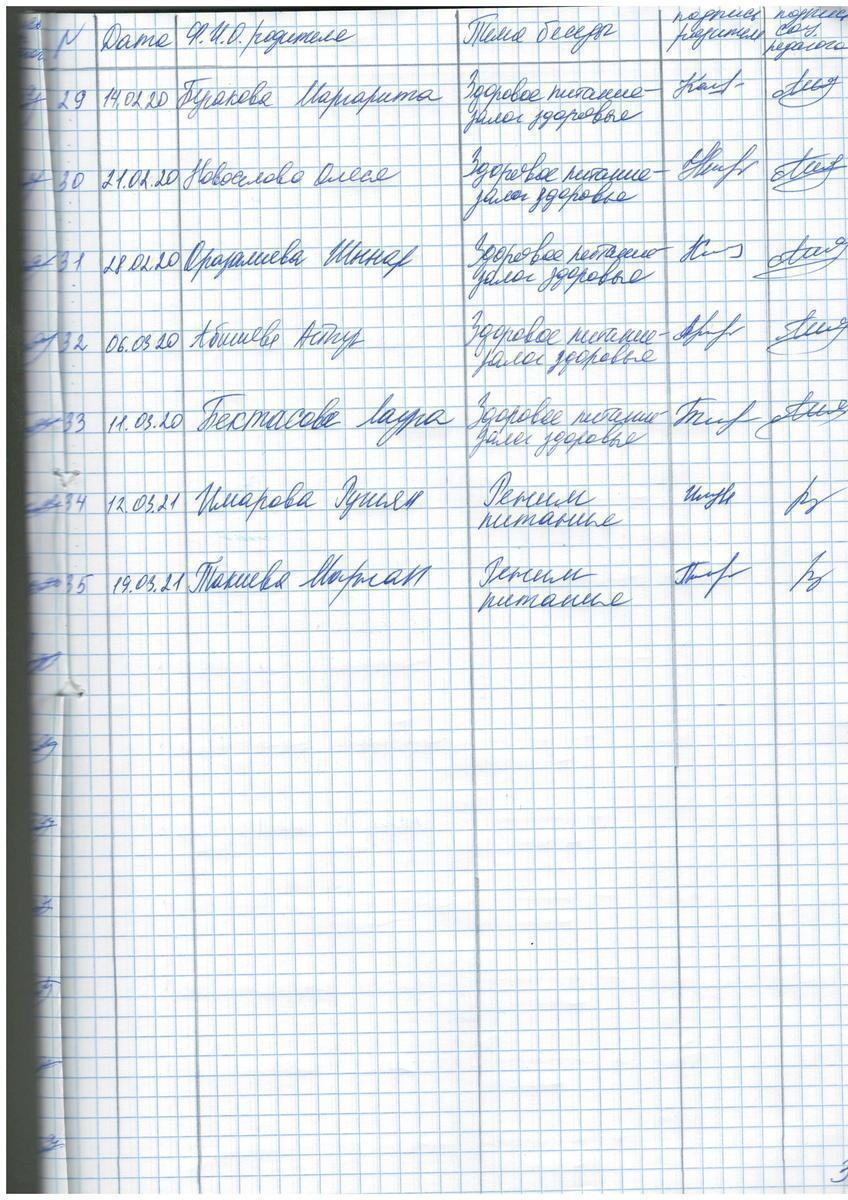 N Дата Ф.И.О. родителя Тема беседы подпись родителя подпись соц. педагога
29 14.02.20 Буракова Маргарита Здоровое питание-
залог здоровья
30 21.02.20 Новосёлова Олеся Здоровое питание-
залог здоровья
31 28.02.20 Оразалиева Шынар Здоровое питание
залог здоровья
32 06.03.20 Абишева Здоровое питание-
залог здоровья
33 11.03.20 Бектасова Лаура Здоровое питание
залог здоровья
34 12.03.21 Имарова Режим
питание
35 19.03.21 Такиева Маржан Режим
питание